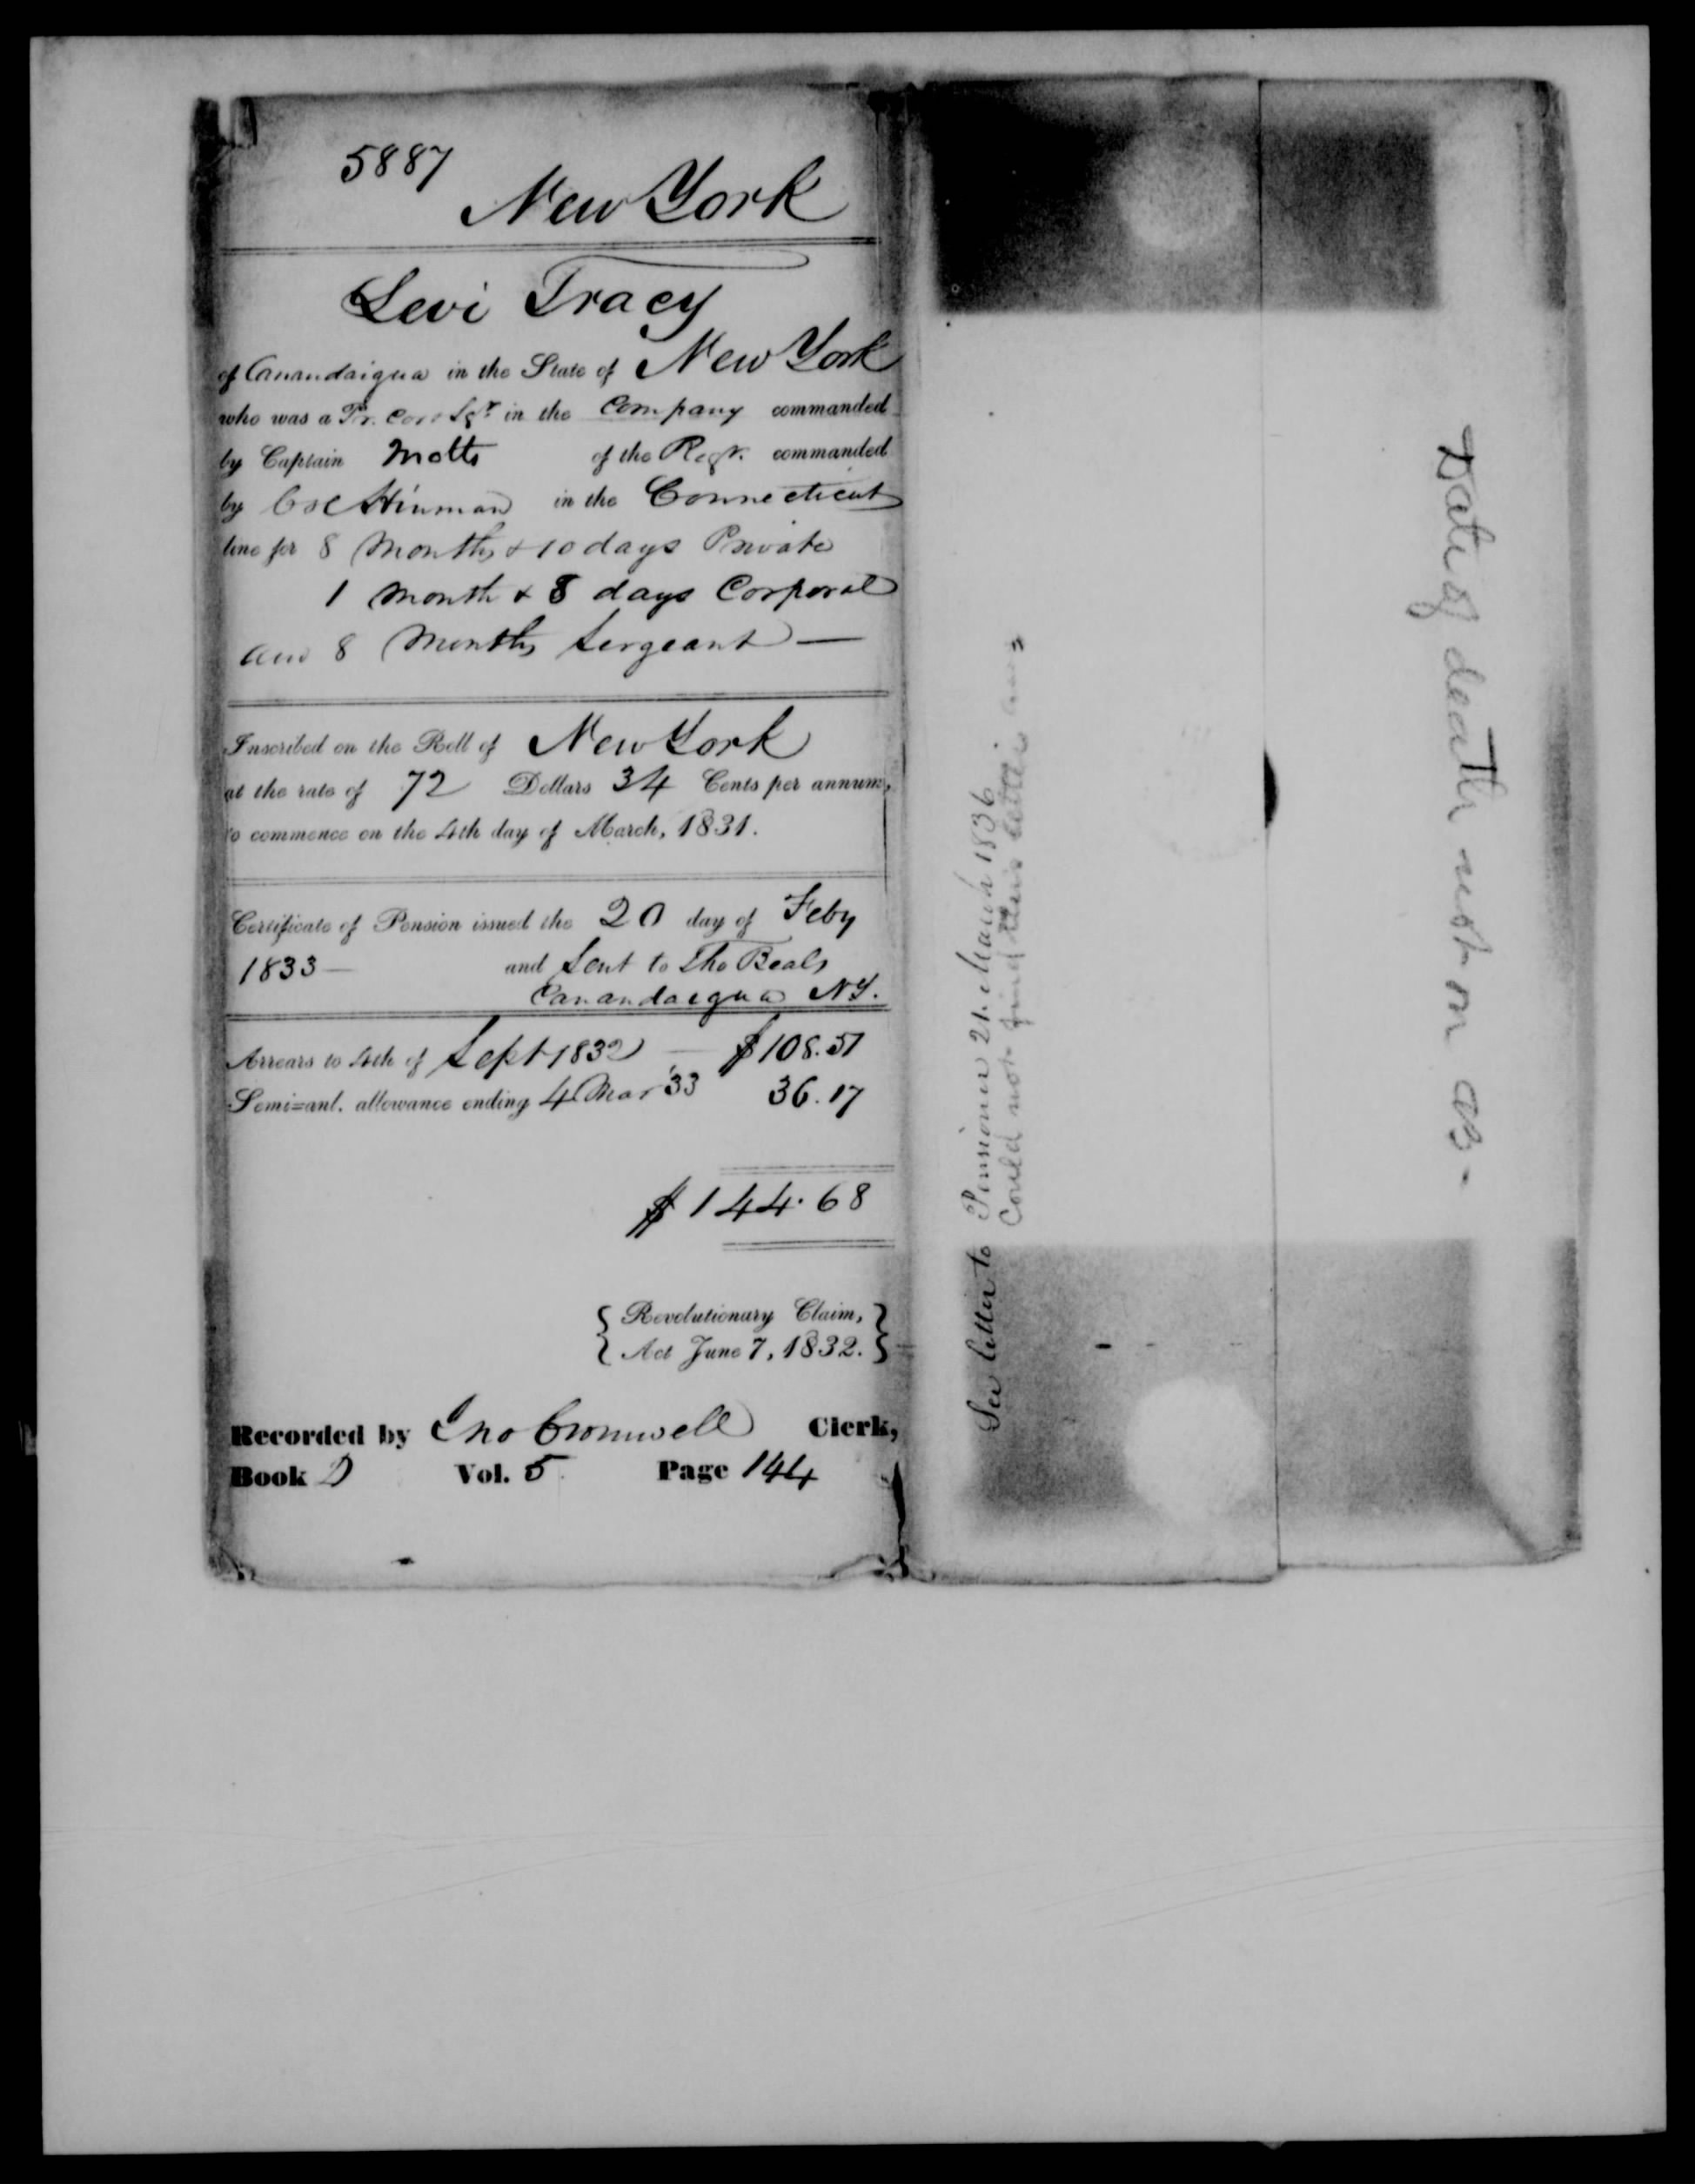 5887
New York
Levi Tracy
of Canandaigua in the State of New York
who was a Pr. Cor & Sgr. in the Company commanded
by Captain Motts of the Regt. commanded
by Col Hinman in the Connecticut
line for 8 Months & 10 days Private
1 Month & 8 days Corporal
and 8 Months Sergeant —
Inscribed on the Roll of New York
at the rate of 72 Dollars 34 Cents per annum,
to commence on the 4th day of March, 1831.
Certificate of Pension issued the 20 day of Feby
1833 — and Sent to Tho Beals
Canandaigua NY.
Arrears to 4th of Sept 1832 — $108.51
Semi=anl. allowance ending 4 Mar '33 36.17
$144.68
{ Revolutionary Claim, }
{ Act June 7, 1832. }
Recorded by Jno Cromwell Clerk,
Book D Vol. 5 Page 144
See letter to Pensioner 21. March 1836
Could not find this letter
Date of death not on